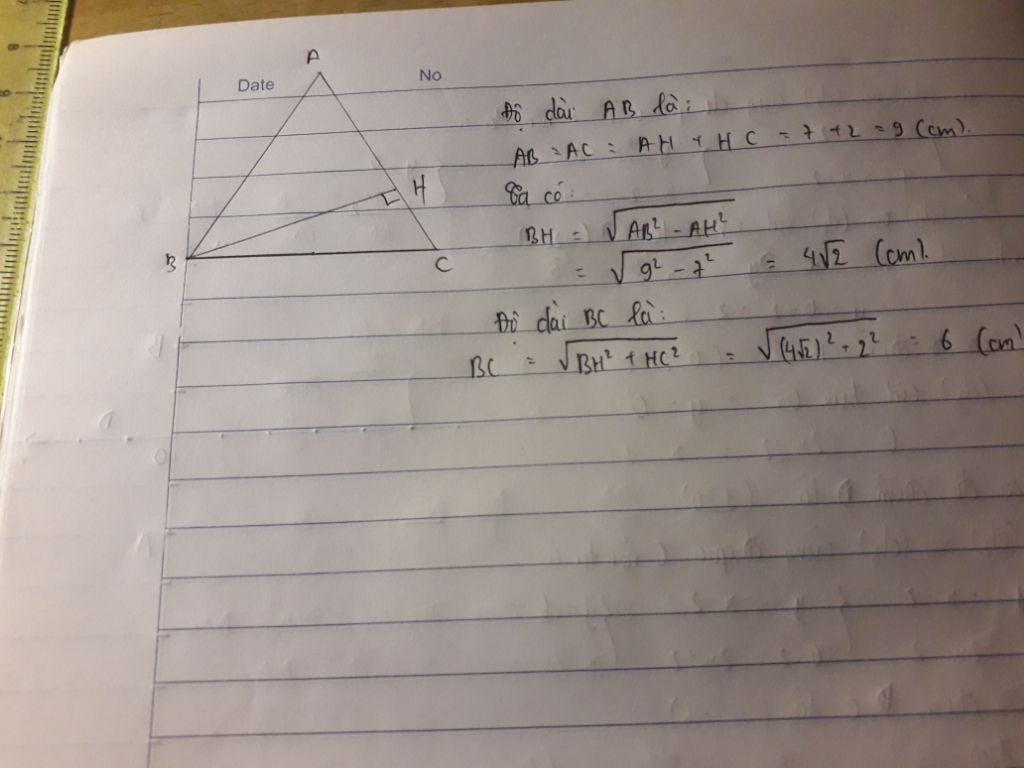 A
Date No
Độ dài AB là:
AB = AC = AH + HC = 7 + 2 = 9 (cm).
Ta có:
H
BH = √(AB² - AH²)
B C
= √(9² - 7²) = 4√2 (cm).
Độ dài BC là:
BC = √(BH² + HC²) = √((4√2)² + 2²) = 6 (cm)